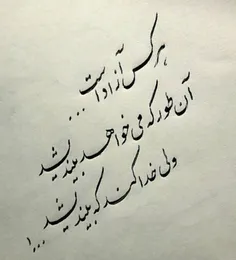 هر کس آزاد است...
آن طور که می خواهد بیندیشد
ولی خدا کند که بیندیشد...!